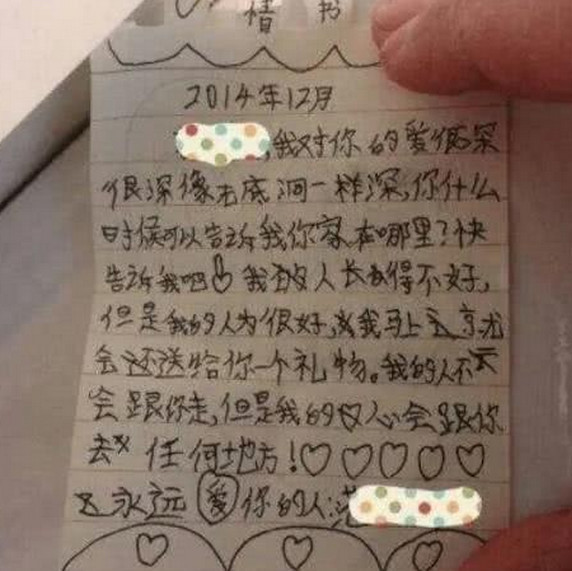 情书
2014年12月
,我对你的爱很深
很深像无底洞一样深,你什么
时候可以告诉我你家在哪里?快
告诉我吧 我的人长得不好,
但是我的人为很好,我马上就
会还送给你一个礼物。我的人不
会跟你走,但是我的心会跟你
去 任何地方!♡♡♡♡♡
永远爱你的人:范